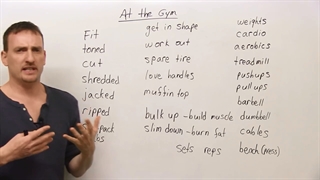 At the Gym
Fit
toned
cut
shredded
jacked
ripped
pack
get in shape
work out
spare tire
love handles
muffin top
bulk up - build muscle
slim down - burn fat
sets reps
weights
cardio
aerobics
treadmill
pushups
pull ups
barbell
dumbbell
cables
bench (press)